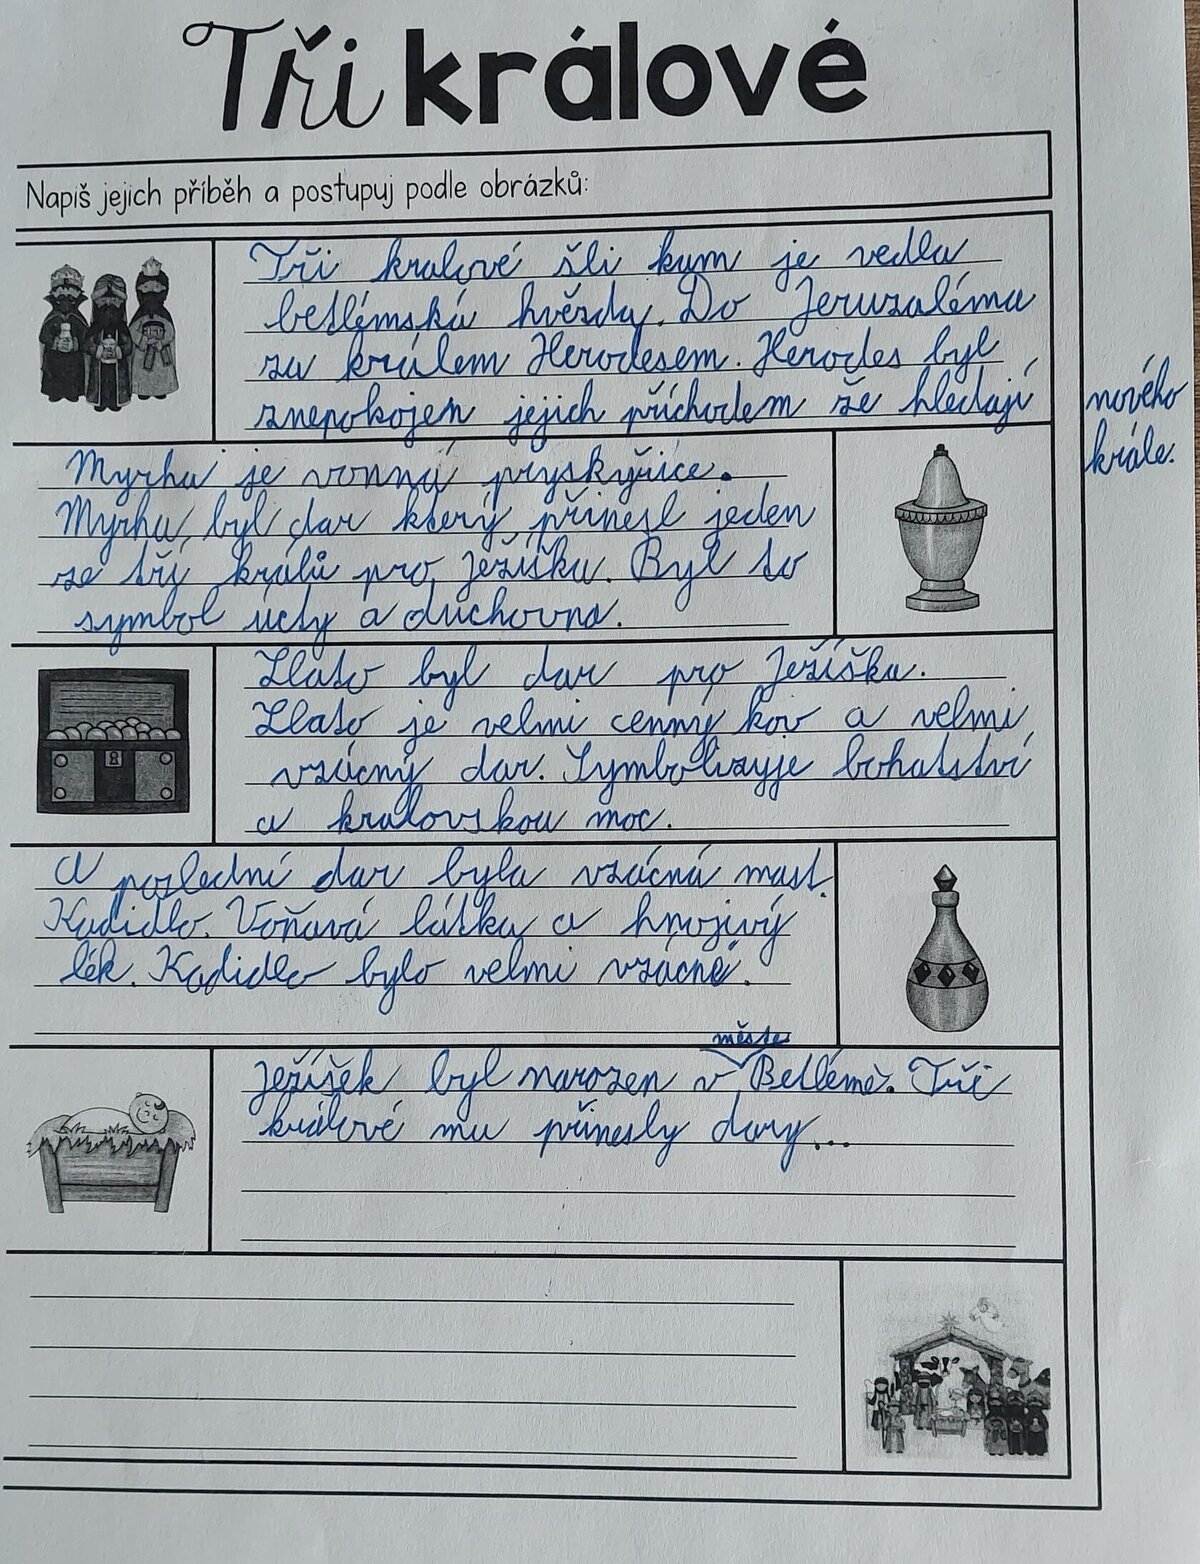 Tři králové
Napiš jejich příběh a postupuj podle obrázků:
Tři kralové šli kum je vedla
betlémská hvězda. Do Jeruzaléma
za králem Herodesem. Herodes byl
znepokojen jejich příchodem že hledají
nového
krále.
Myrha je vonná pryskyřice.
Myrha byl dar který přinesl jeden
ze tří králů pro Ježíška. Byl to
symbol ucty a duchovna.
Zlato byl dar pro Ježíška.
Zlato je velmi cenný kov a velmi
vzácný dar. Symbolizyje bohatství
a kralovskou moc.
A poslední dar byla vzácná mast.
Kadidlo. Voňavá látka a hnojivý
lék. Kadidlo bylo velmi vzácné.
městě
Ježíšek byl narozen v Betlémě. Tři
králové mu přinesly dary...